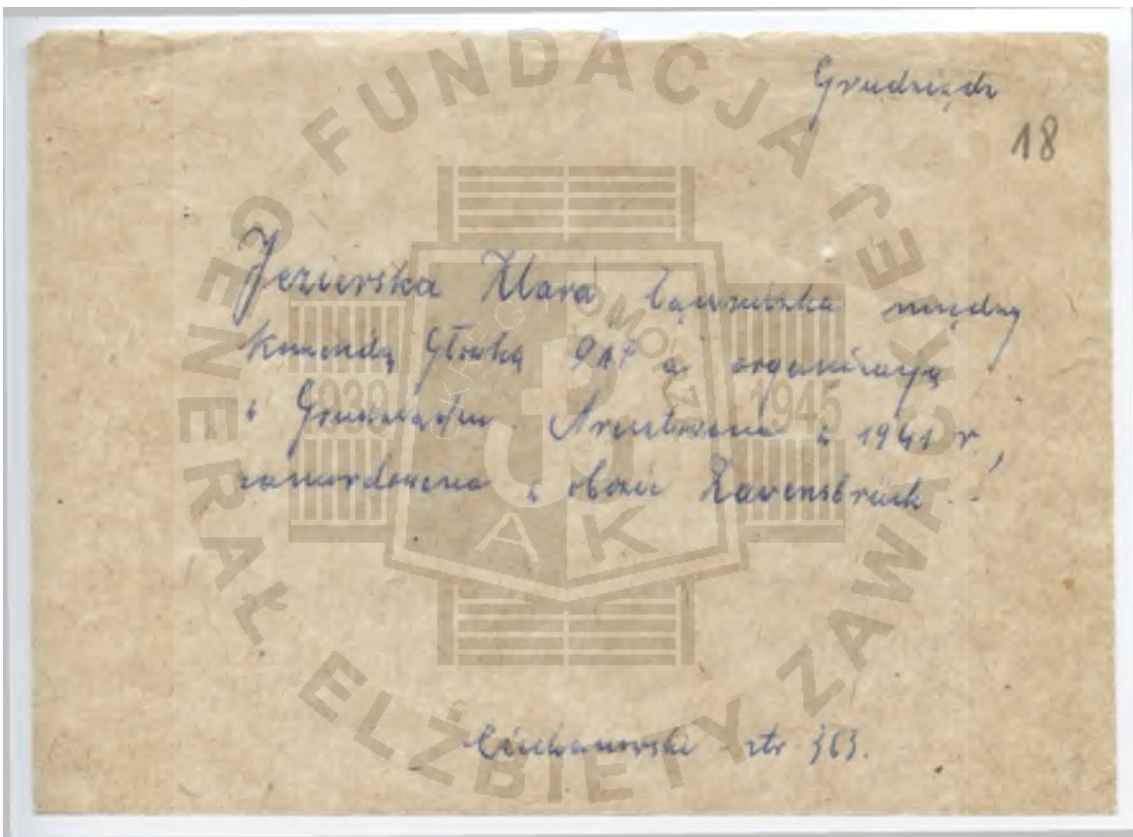 Grudziądz
18
Jezierska Klara, łączniczka między
Komendą Główną a organizacją
w Grudziądzu. Aresztowana w 1941 r.,
zamordowana w obozie Ravensbrück.
Ciechanowski str 363.
FUNDACJA GENERAŁ ELŻBIETY ZAWACKIEJ
OKRĘG POMORZE
1939 1945
AK